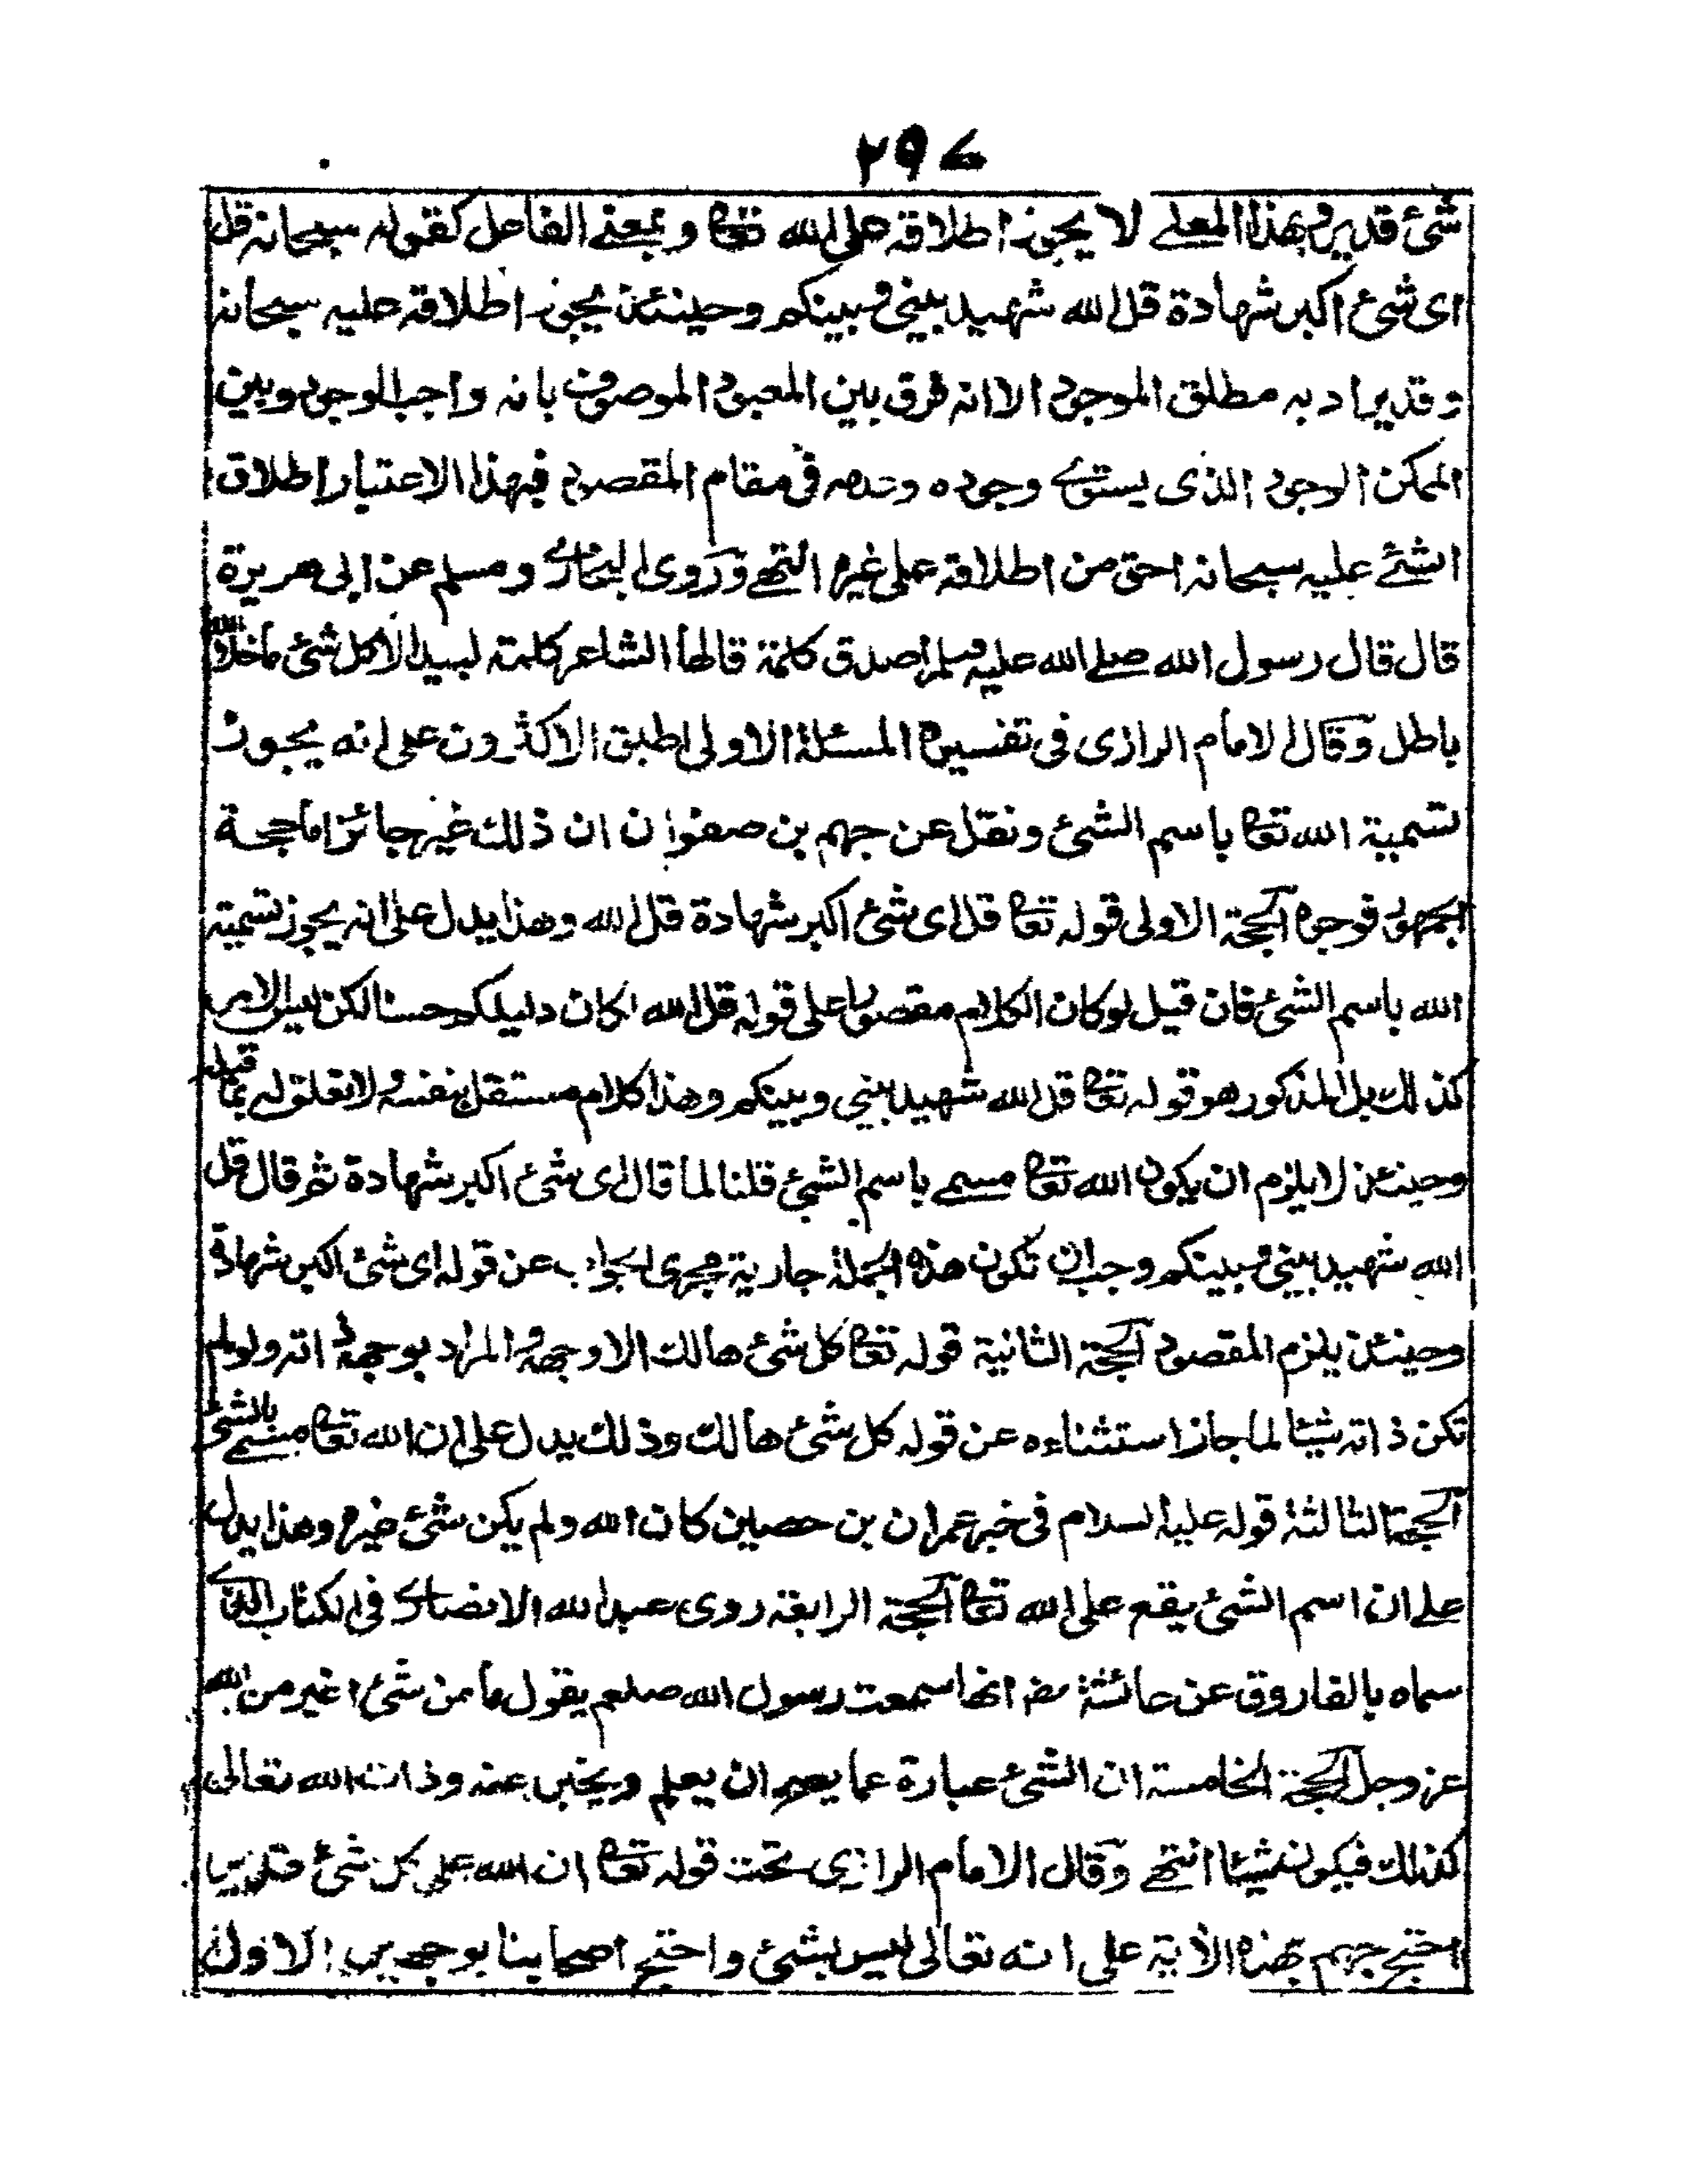 ٢٩٧
شئ قدير وبهذا المعنے لا يجوز اطلاقه على الله تعا وبمعنے الفاعل كقوله سبحانه قل
اى شئ اكبر شهادة قل الله شهيد بينى وبينكم وحينئذ يجوز اطلاقه عليه سبحانه
وقد يراد به مطلق الموجود الا انه فرق بين المعبود الموصوف بانه واجب الوجود وبين
الممكن الوجود الذى يستوے وجوده وعدمه فى مقام المقصود فبهذا الاعتبار اطلاق
الشئے عليه سبحانه احق من اطلاقه على غيره انتهے وروى البخارے ومسلم عن ابى هريرة
قال قال رسول الله صلے الله عليه وسلم اصدق كلمة قالها الشاعر كلمة لبيد الا كل شئ ما خلا الله
باطل وقال الامام الرازى فى تفسيره المسئلة الاولى اطبق الاكثرون على انه يجوز
تسمية الله تعا باسم الشئ ونقل عن جهم بن صفوان ان ذلك غير جائز اما حجة
الجمهور فوجوه الحجة الاولى قوله تعا قل اى شئ اكبر شهادة قل الله وهذا يدل على انه يجوز تسمية
الله باسم الشئ فان قيل لو كان الكلام مقصورا على قوله قل الله لكان دليلكم حسنا لكن ليس الامر
كذلك بل المذكور هو قوله تعا قل الله شهيد بينى وبينكم وهذا كلام مستقل بنفسه ولا تعلق له بما قبله
وحينئذ لا يلزم ان يكون الله تعا مسمے باسم الشئ قلنا لما قال اى شئ اكبر شهادة ثم قال قل
الله شهيد بينى وبينكم وجب ان تكون هذه الجملة جارية مجرى الجواب عن قوله اى شئ اكبر شهادة
وحينئذ يلزم المقصود الحجة الثانية قوله تعا كل شئ هالك الا وجهه والمراد بوجهه ذاته ولو لم
تكن ذاته شيئا لما جاز استثناءه عن قوله كل شئ هالك وذلك يدل على ان الله تعا مسمے بالشئ
الحجة الثالثة قوله عليه السلام فى خبر عمران بن حصين كان الله ولم يكن شئ غيره وهذا يدل
علے ان اسم الشئ يقع على الله تعا الحجة الرابعة روى عبد الله الانصارے فى الكتاب الذے
سماه بالفاروق عن عائشة رضـ انها سمعت رسول الله صلعم يقول ما من شئ اغير من الله
عز وجل الحجة الخامسة ان الشئ عبارة عما يصح ان يعلم ويخبر عنه وذات الله تعالى
كذلك فيكون شيئا انتهے وقال الامام الرازى تحت قوله تعا ان الله على كل شئ قدير
احتج جهم بهذه الآية على انه تعالى ليس بشئ واحتج اصحابنا بوجهين الاول